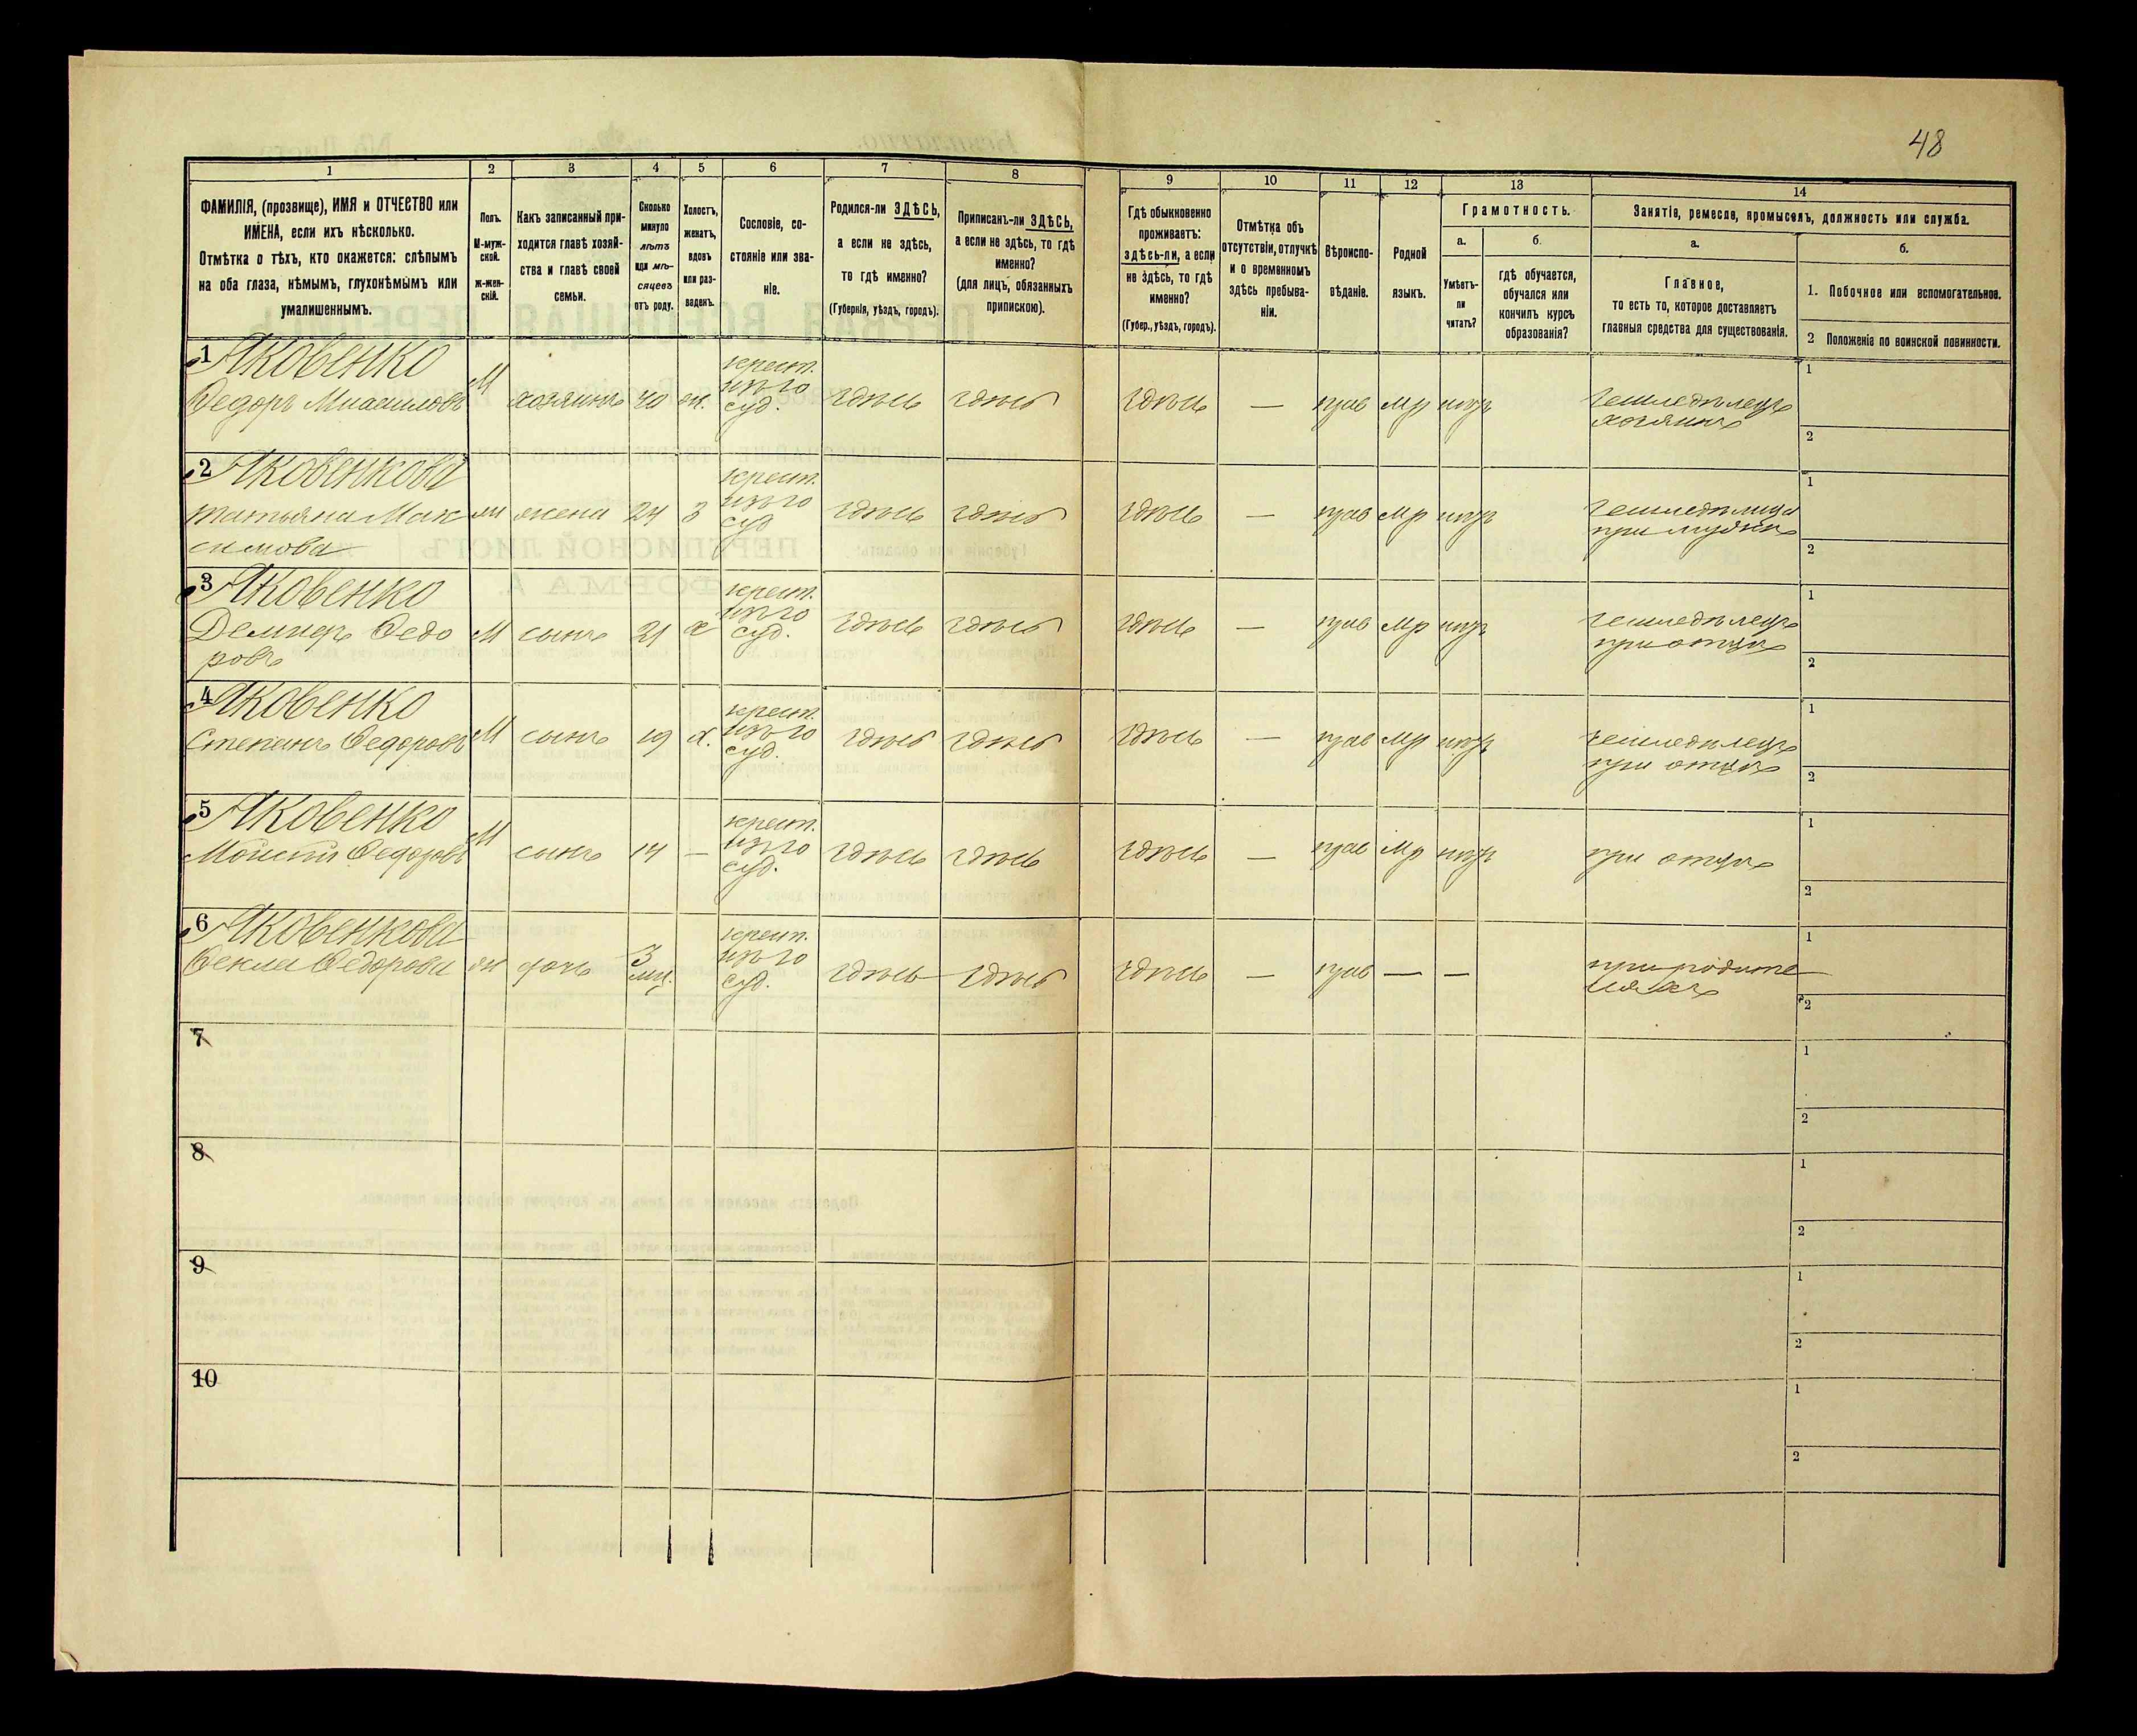 48
1 2 3 4 5 6 7 8 9 10 11 12 13 14
ФАМИЛІЯ, (прозвище), ИМЯ и ОТЧЕСТВО или ИМЕНА, если ихъ нѣсколько.
Отмѣтка о тѣхъ, кто окажется: слѣпымъ на оба глаза, нѣмымъ, глухонѣмымъ или умалишеннымъ.
Полъ. М-мужской. Ж-женскій.
Какъ записанный приходится главѣ хозяйства и главѣ своей семьи.
Сколько минуло лѣтъ или мѣсяцевъ отъ роду.
Холостъ, женатъ, вдовъ или разведенъ.
Сословіе, состояніе или званіе.
Родился-ли ЗДѢСЬ, а если не здѣсь, то гдѣ именно?
(Губернія, уѣздъ, городъ).
Приписанъ-ли ЗДѢСЬ, а если не здѣсь, то гдѣ именно?
(для лицъ, обязанныхъ припискою).
Гдѣ обыкновенно проживаетъ: здѣсь-ли, а если не здѣсь, то гдѣ именно?
(Губер., уѣздъ, городъ).
Отмѣтка объ отсутствіи, отлучкѣ и о временномъ здѣсь пребываніи.
Вѣроисповѣданіе.
Родной языкъ.
Грамотность.
а. Умѣетъ-ли читать?
б. гдѣ обучается, обучался или кончилъ курсъ образованія?
Занятіе, ремесло, промыселъ, должность или служба.
а. Главное, то есть то, которое доставляетъ главныя средства для существованія.
б.
1. Побочное или вспомогательное.
2 Положеніе по воинской повинности.
1 Яковенко
Федоръ М хозяинъ 40 ж. крест. изъ го суд. здѣсь здѣсь здѣсь — прав мр нѣтъ земледѣлецъ хозяинъ 1 2
2 Яковенкова
Татьяна Максимова ж жена 24 з крест. изъ го суд здѣсь здѣсь здѣсь — прав мр нѣтъ при мужѣ 1 2
3 Яковенко
Демидъ Федоровъ М сынъ 21 х крест. изъ го суд. здѣсь здѣсь здѣсь — прав мр нѣтъ земледѣлецъ при отцѣ 1 2
4 Яковенко
Степанъ Федоровъ М сынъ 19 х. крест. изъ го суд. здѣсь здѣсь здѣсь — прав мр нѣтъ земледѣлецъ при отцѣ 1 2
5 Яковенко
Моисей Федоровъ М сынъ 14 — крест. изъ го суд. здѣсь здѣсь здѣсь — прав мр нѣтъ при отцѣ 1 2
6 Яковенкова
Фекла Федорова ж дочь 3 мц. крест. изъ го суд. здѣсь здѣсь здѣсь — прав — — при родителяхъ 1 2
7 1 2
8 1 2
9 1 2
10 1 2